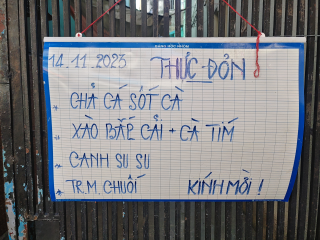 14.11.2023 THỰC ĐƠN
* CHẢ CÁ SỐT CÀ
* XÀO BẮP CẢI + CÀ TÍM
* CANH SU SU
* TR.M. CHUỐI KÍNH MỜI !